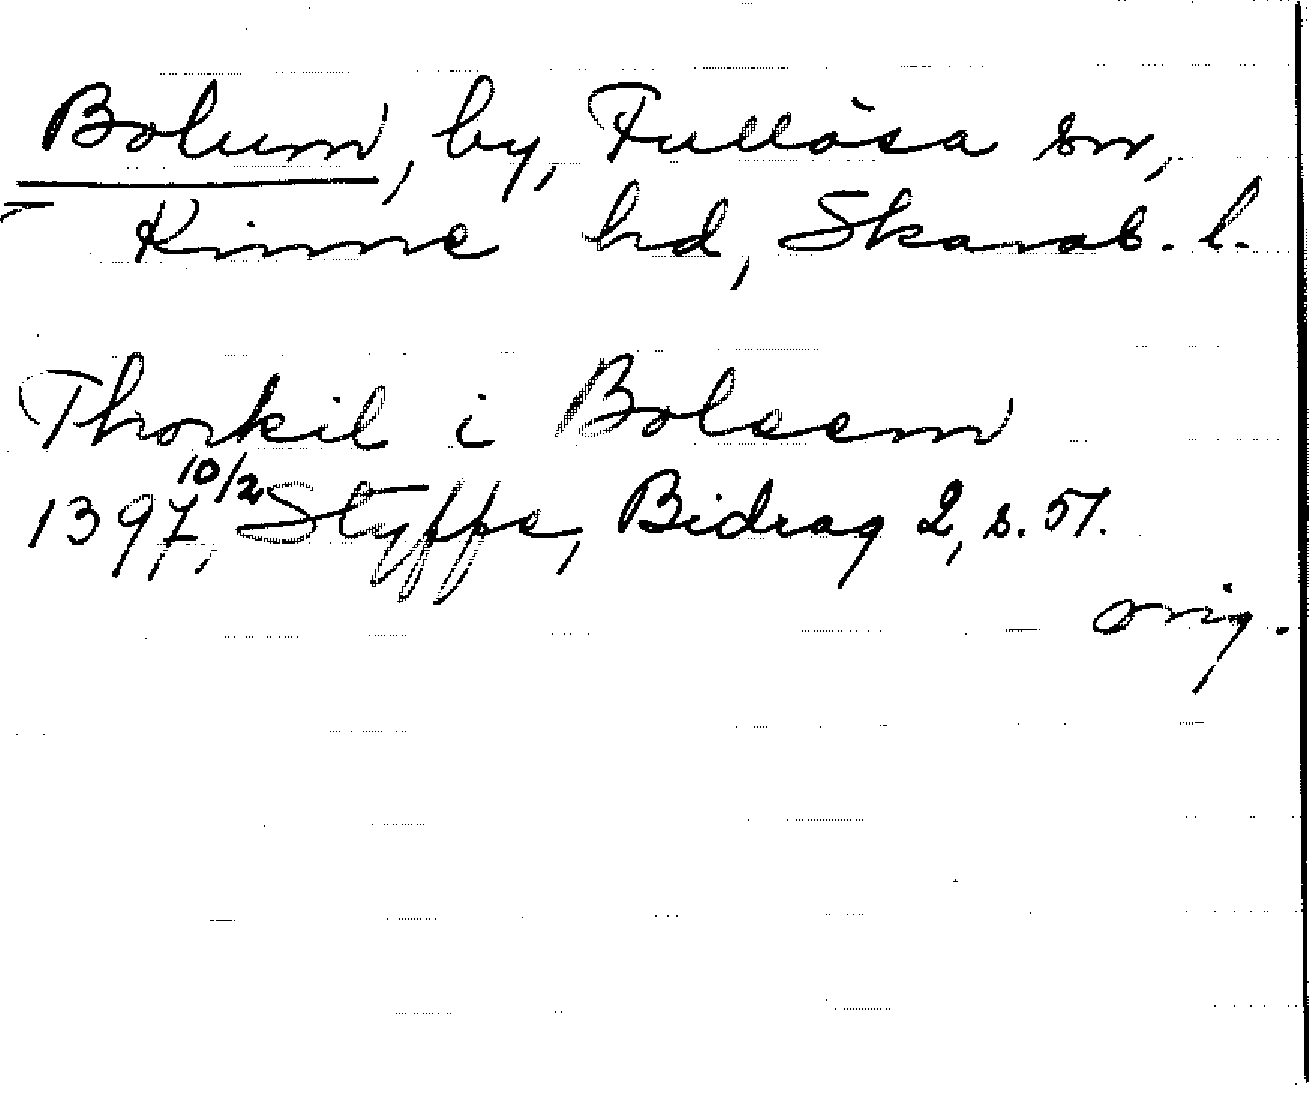 Bolum, by, Fullösa sn,
Kinne hd, Skarab. l.
Thorkil i Boleem
1397 10/2, Styffe, Bidrag 2, s. 57.
orig.